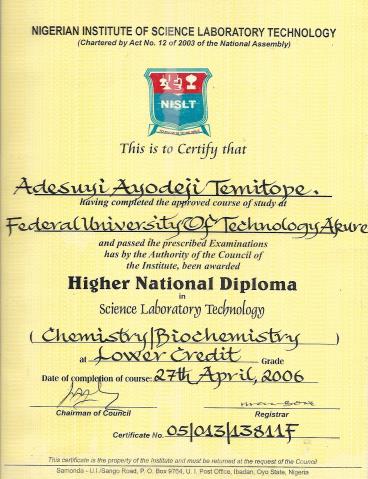 NIGERIAN INSTITUTE OF SCIENCE LABORATORY TECHNOLOGY
(Chartered by Act No. 12 of 2003 of the National Assembly)
NISLT
This is to Certify that
Adesuyi Ayodeji Temitope.
having completed the approved course of study at
Federal University Of Technology Akure
and passed the prescribed Examinations
has by the Authority of the Council of
the Institute, been awarded
Higher National Diploma
in
Science Laboratory Technology
(Chemistry/Biochemistry)
at Lower Credit Grade
Date of completion of course: 27th April, 2006
Chairman of Council Registrar
Certificate No. 05/013/13811F
This certificate is the property of the Institute and must be returned at the request of the Council
Samonda - U.I./Sango Road, P. O. Box 9764, U. I. Post Office, Ibadan, Oyo State, Nigeria